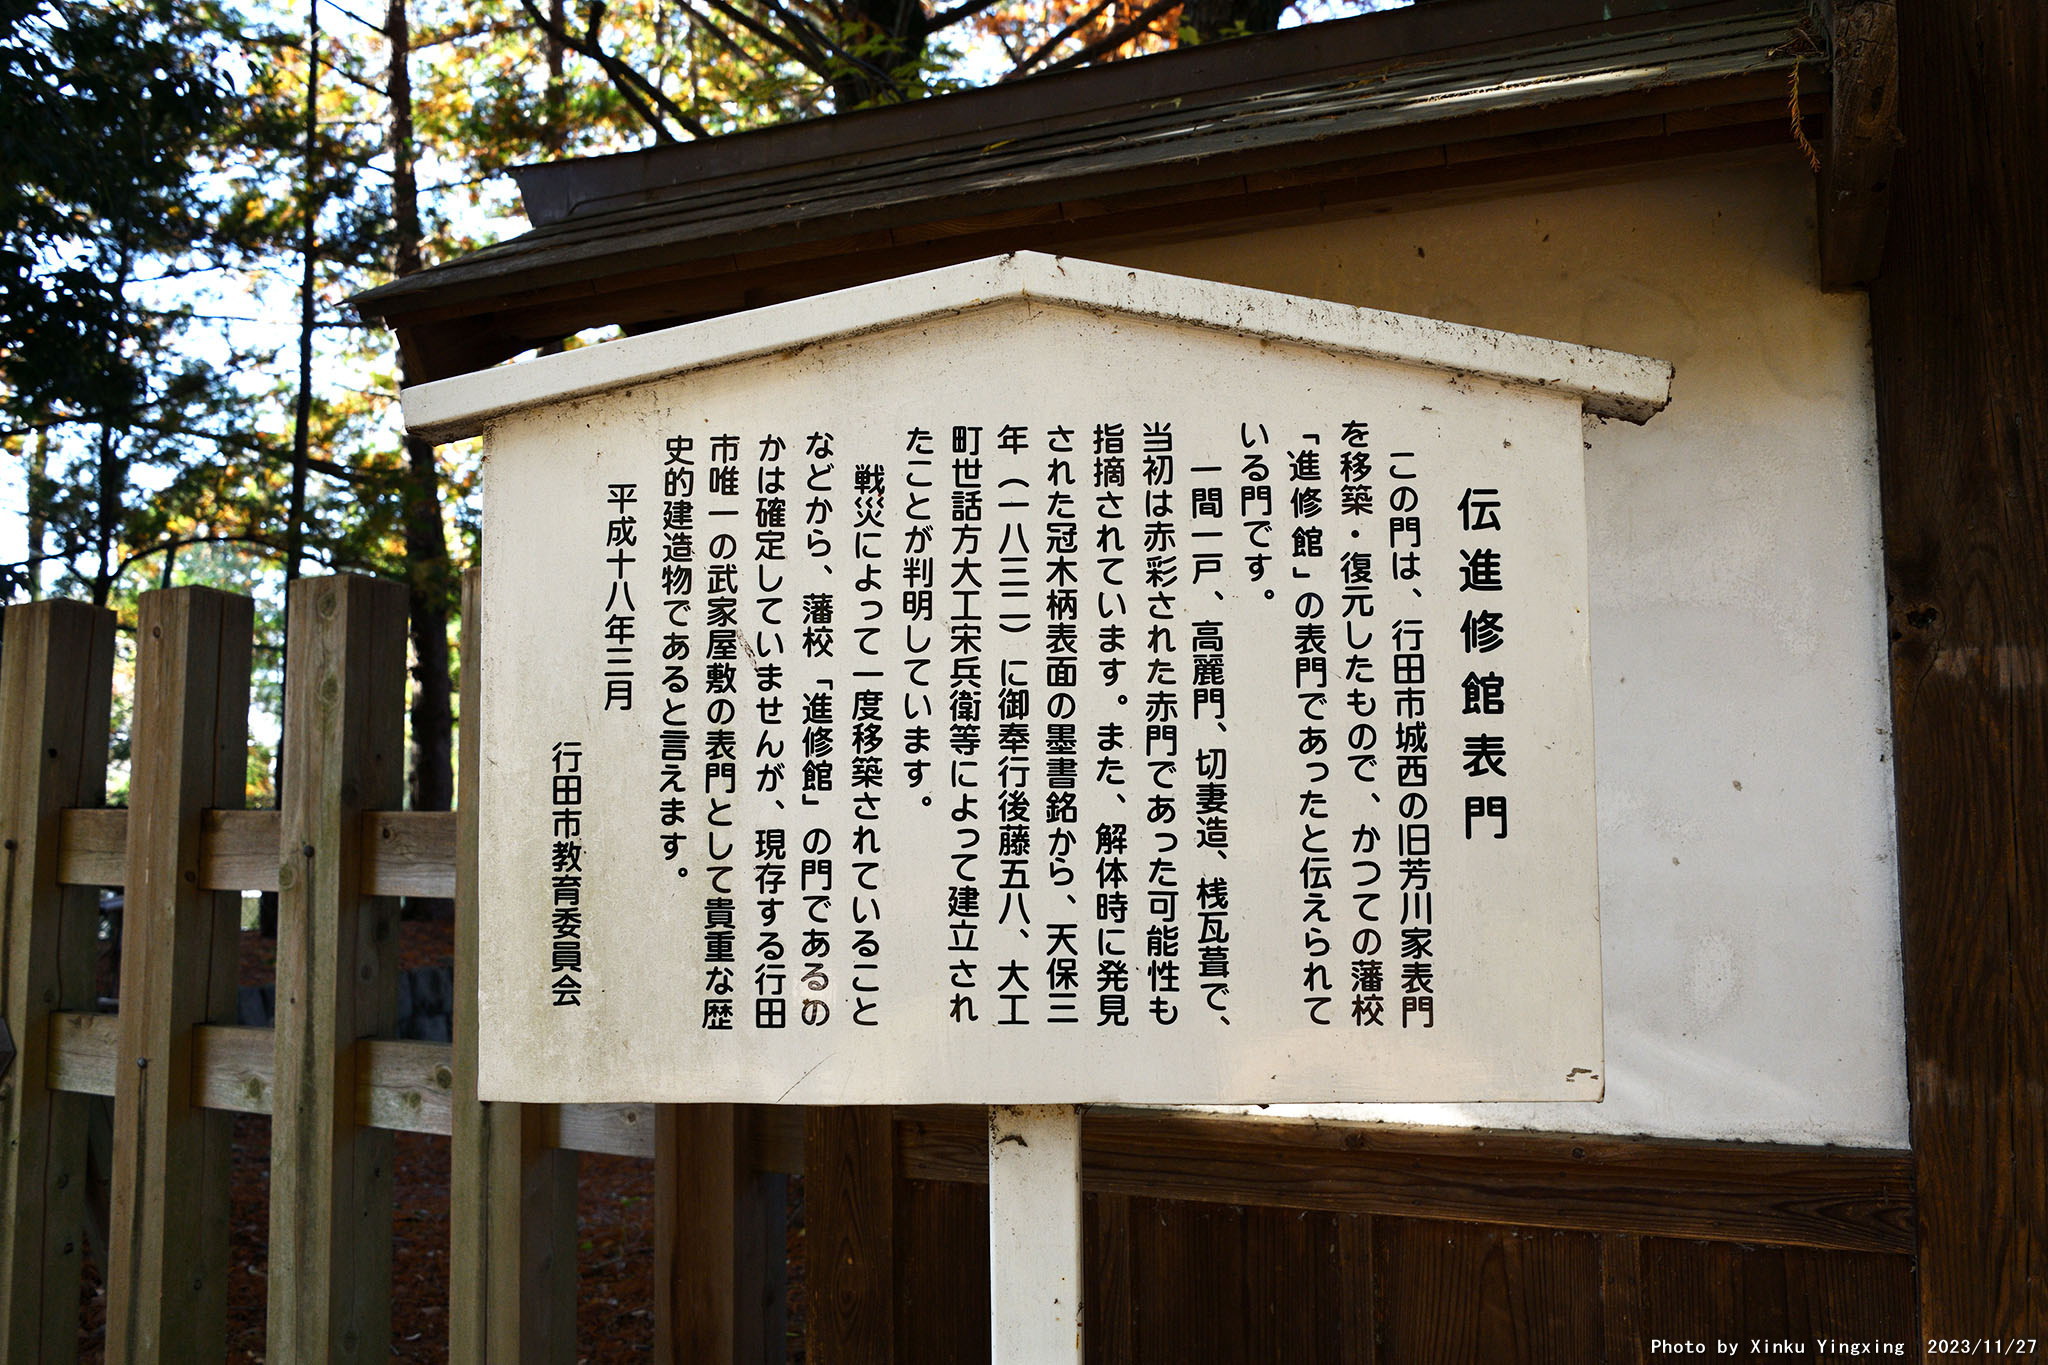 伝進修館表門
この門は、行田市城西の旧芳川家表門
を移築・復元したもので、かつての藩校
「進修館」の表門であったと伝えられて
いる門です。
一間一戸、高麗門、切妻造、桟瓦葺で、
当初は赤彩された赤門であった可能性も
指摘されています。また、解体時に発見
された冠木柄表面の墨書銘から、天保三
年（一八三二）に御奉行後藤五八、大工
町世話方大工宋兵衛等によって建立され
たことが判明しています。
戦災によって一度移築されていること
などから、藩校「進修館」の門であるの
かは確定していませんが、現存する行田
市唯一の武家屋敷の表門として貴重な歴
史的建造物であると言えます。
平成十八年三月
行田市教育委員会
Photo by Xinku Yingxing 2023/11/27